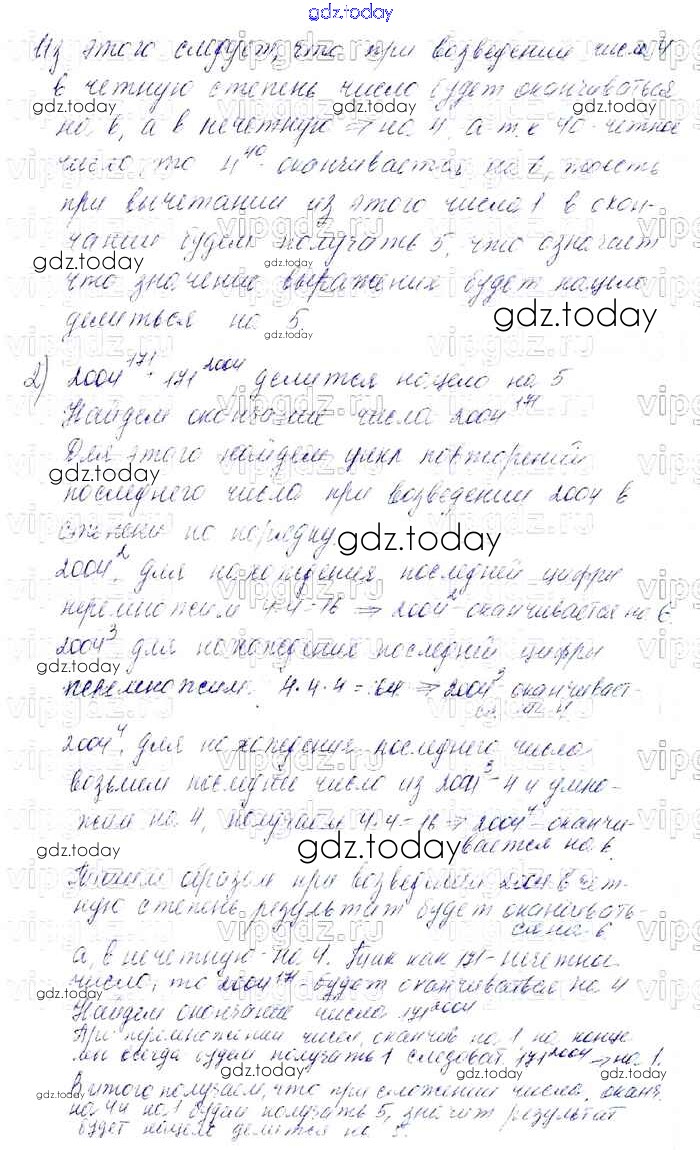 gdz.today
Из этого следует, что при возведении числа 4
в четную степень число будет оканчиваться
gdz.today gdz.today gdz.today
на 6, а в нечетную ⇒ на 4, а т.к 40 - четное
число, то 4^40 - оканчивается на 6, тоесть
при вычетании из этого числа 1 в окон-
чании будем получать 5, что означает
gdz.today gdz.today
что значение выражения будет нацело
делиться на 5.
gdz.today
2) 2004^171 + 171^2004 делится нацело на 5
Найдем окончание числа 2004^171
Для этого найдем цикл повторений
gdz.today
последнего числа при возведении 2004 в
степени по порядку.
gdz.today
2004^2, для нахождения последней цифры
перемножим 4·4=16 ⇒ 2004^2 - оканчивается на 6.
2004^3, для нахождения последней цифры
gdz.today gdz.today
перемножим 4·4·4=64 ⇒ 2004^3 оканчивает-
ся на 4
2004^4, для нахождения последнего числа
возьмем последнее число из 2004^3 - 4 и умно-
жим на 4, получаем 4·4=16 ⇒ 2004^4 - оканчи-
вается на 6.
gdz.today gdz.today
Таким образом при возведении 2004 в чет-
ную степень результат будет оканчивать-
ся на 6
а, в нечетную - на 4. Так как 171 - нечетное
число, то 2004^171 - будет оканчиваться на 4
gdz.today gdz.today
Найдем окончание числа 171^2004
При перемножении чисел, оканчив на 1 на конце
мы всегда будем получать 1 следоват. 171^2004 ⇒ на 1.
gdz.today gdz.today
В итого получаем, что при сложении числа, оканч.
на 4 и на 1 будем получать 5, значит результат
будет нацело делится на 5.